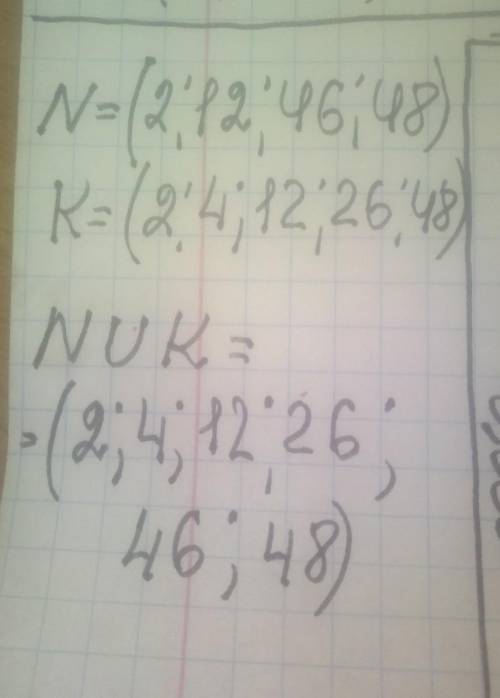 N=(2;12;46;48)
K=(2;4;12;26;48)
NUK=
=(2;4;12;26;
46;48)